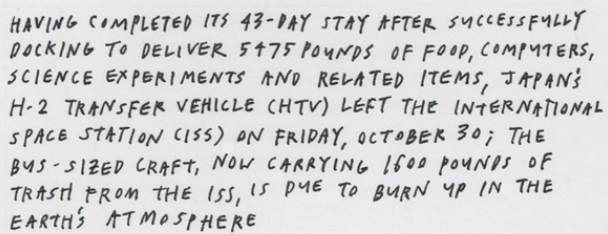 HAVING COMPLETED ITS 43-DAY STAY AFTER SUCCESSFULLY
DOCKING TO DELIVER 5475 POUNDS OF FOOD, COMPUTERS,
SCIENCE EXPERIMENTS AND RELATED ITEMS, JAPAN'S
H-2 TRANSFER VEHICLE (HTV) LEFT THE INTERNATIONAL
SPACE STATION (ISS) ON FRIDAY, OCTOBER 30; THE
BUS-SIZED CRAFT, NOW CARRYING 1600 POUNDS OF
TRASH FROM THE ISS, IS DUE TO BURN UP IN THE
EARTH'S ATMOSPHERE